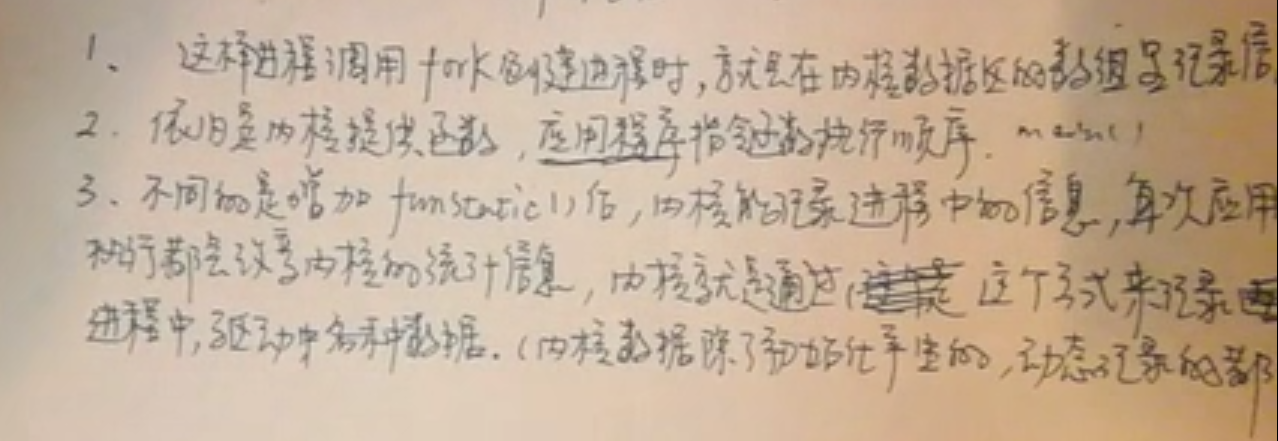 1、 这样进程调用fork创建进程时，就是在内核数据区的数组里记录信
2、依旧是内核提供函数，应用程序指令函数执行顺序. main()
3、不同的是增加funstatic()后，内核能记录进程中的信息，每次应用
执行都会改变内核的统计信息，内核就是通过 这个方式来记录
进程中，驱动中各种数据.（内核数据除了初始化产生的，动态记录的都